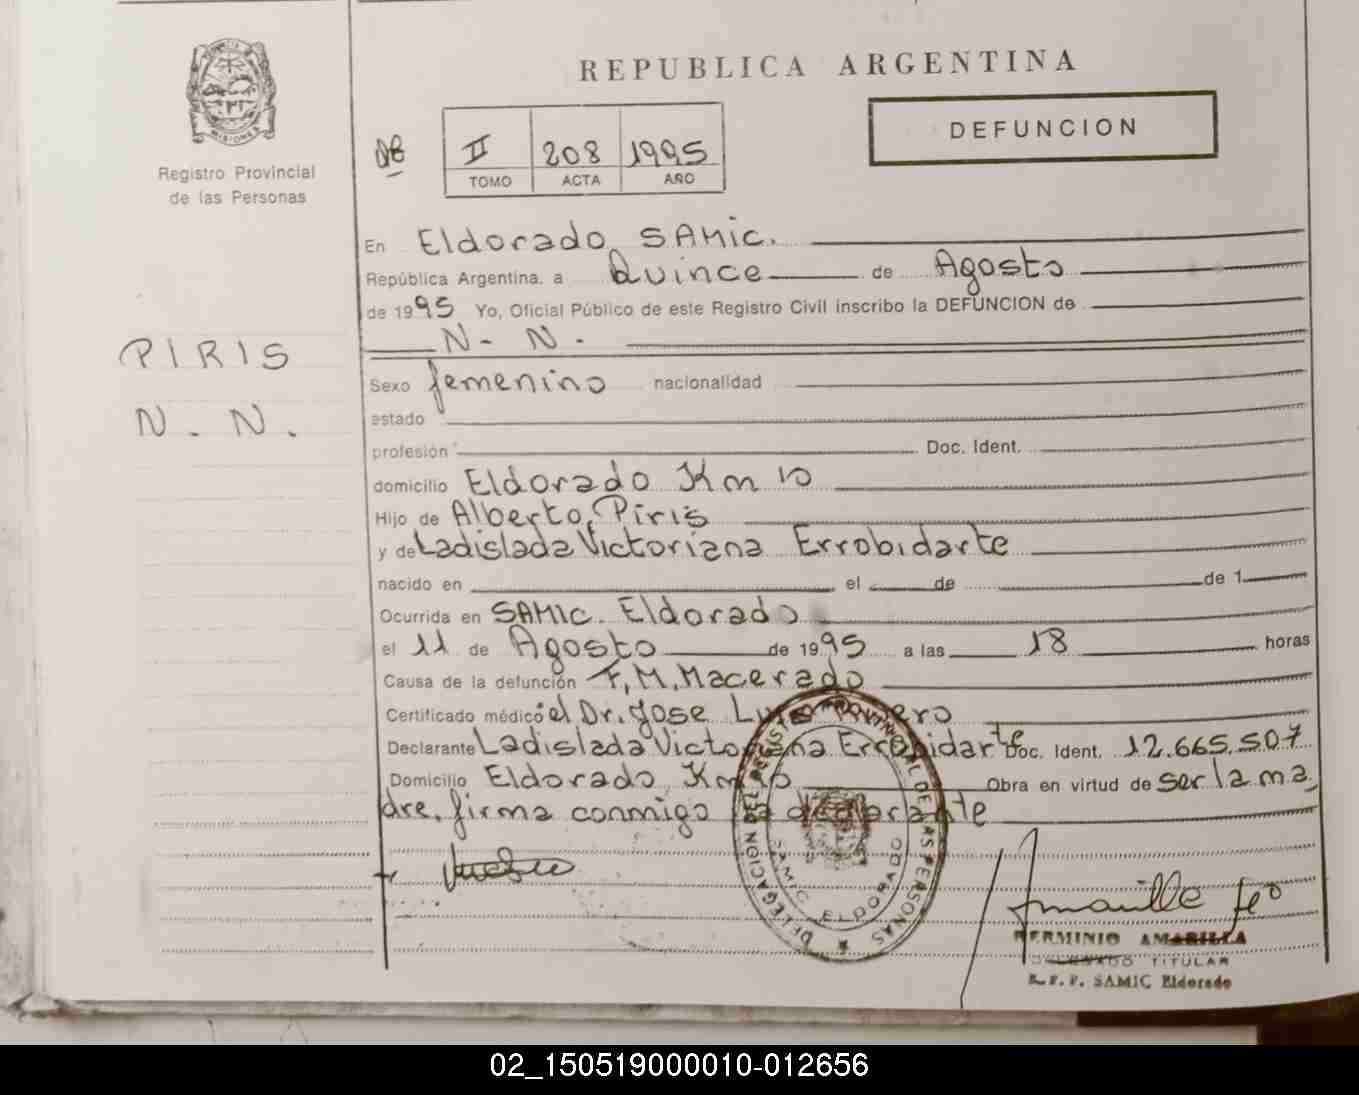 REPUBLICA ARGENTINA
MISIONES
Registro Provincial
de las Personas
DEFUNCION
II 208 1995
TOMO ACTA AÑO
En Eldorado SAMic.
República Argentina, a Quince de Agosto
de 1995 Yo, Oficial Público de este Registro Civil inscribo la DEFUNCION de
N. N.
PIRIS
N. N.
Sexo femenino nacionalidad
estado
profesión Doc. Ident.
domicilio Eldorado Km 10
Hijo de Alberto Piris
y de Ladislada Victoriana Errobidarte
nacido en el de de 1
Ocurrida en SAMIC. Eldorado
el 11 de Agosto de 1995 a las 18 horas
Causa de la defunción F.M. Macerado
Certificado médico el Dr. Jose
Declarante Ladislada Victoriana Errobidarte Doc. Ident. 12.665.507
Domicilio Eldorado Km 10 Obra en virtud de ser la ma
dre, firma conmigo la declarante
DELEGACION DEL REGISTRO PROVINCIAL DE LAS PERSONAS
SAMIC ELDORADO
HERMINIO AMARILLA
DELEGADO TITULAR
R.P.P. SAMIC Eldorado
02_150519000010-012656